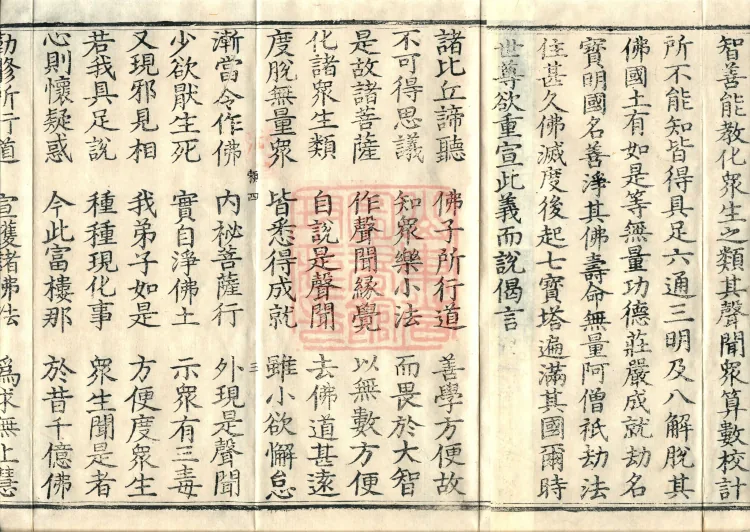 智善能教化衆生之類其聲聞衆算數校計
所不能知皆得具足六通三明及八解脫其
佛國土有如是等無量功德莊嚴成就劫名
寶明國名善淨其佛壽命無量阿僧祇劫法
住甚久佛滅度後起七寶塔遍滿其國爾時
世尊欲重宣此義而說偈言
諸比丘諦聽 佛子所行道 善學方便故
不可得思議 知衆樂小法 而畏於大智
是故諸菩薩 作聲聞緣覺 以無數方便
化諸衆生類 自說是聲聞 去佛道甚遠
度脫無量衆 皆悉得成就 雖小欲懈怠
領四 三
漸當令作佛 內祕菩薩行 外現是聲聞
少欲厭生死 實自淨佛土 示衆有三毒
又現邪見相 我弟子如是 方便度衆生
若我具足說 種種現化事 衆生聞是者
心則懷疑惑 今此富樓那 於昔千億佛
勤修所行道 宣護諸佛法 爲求無上慧